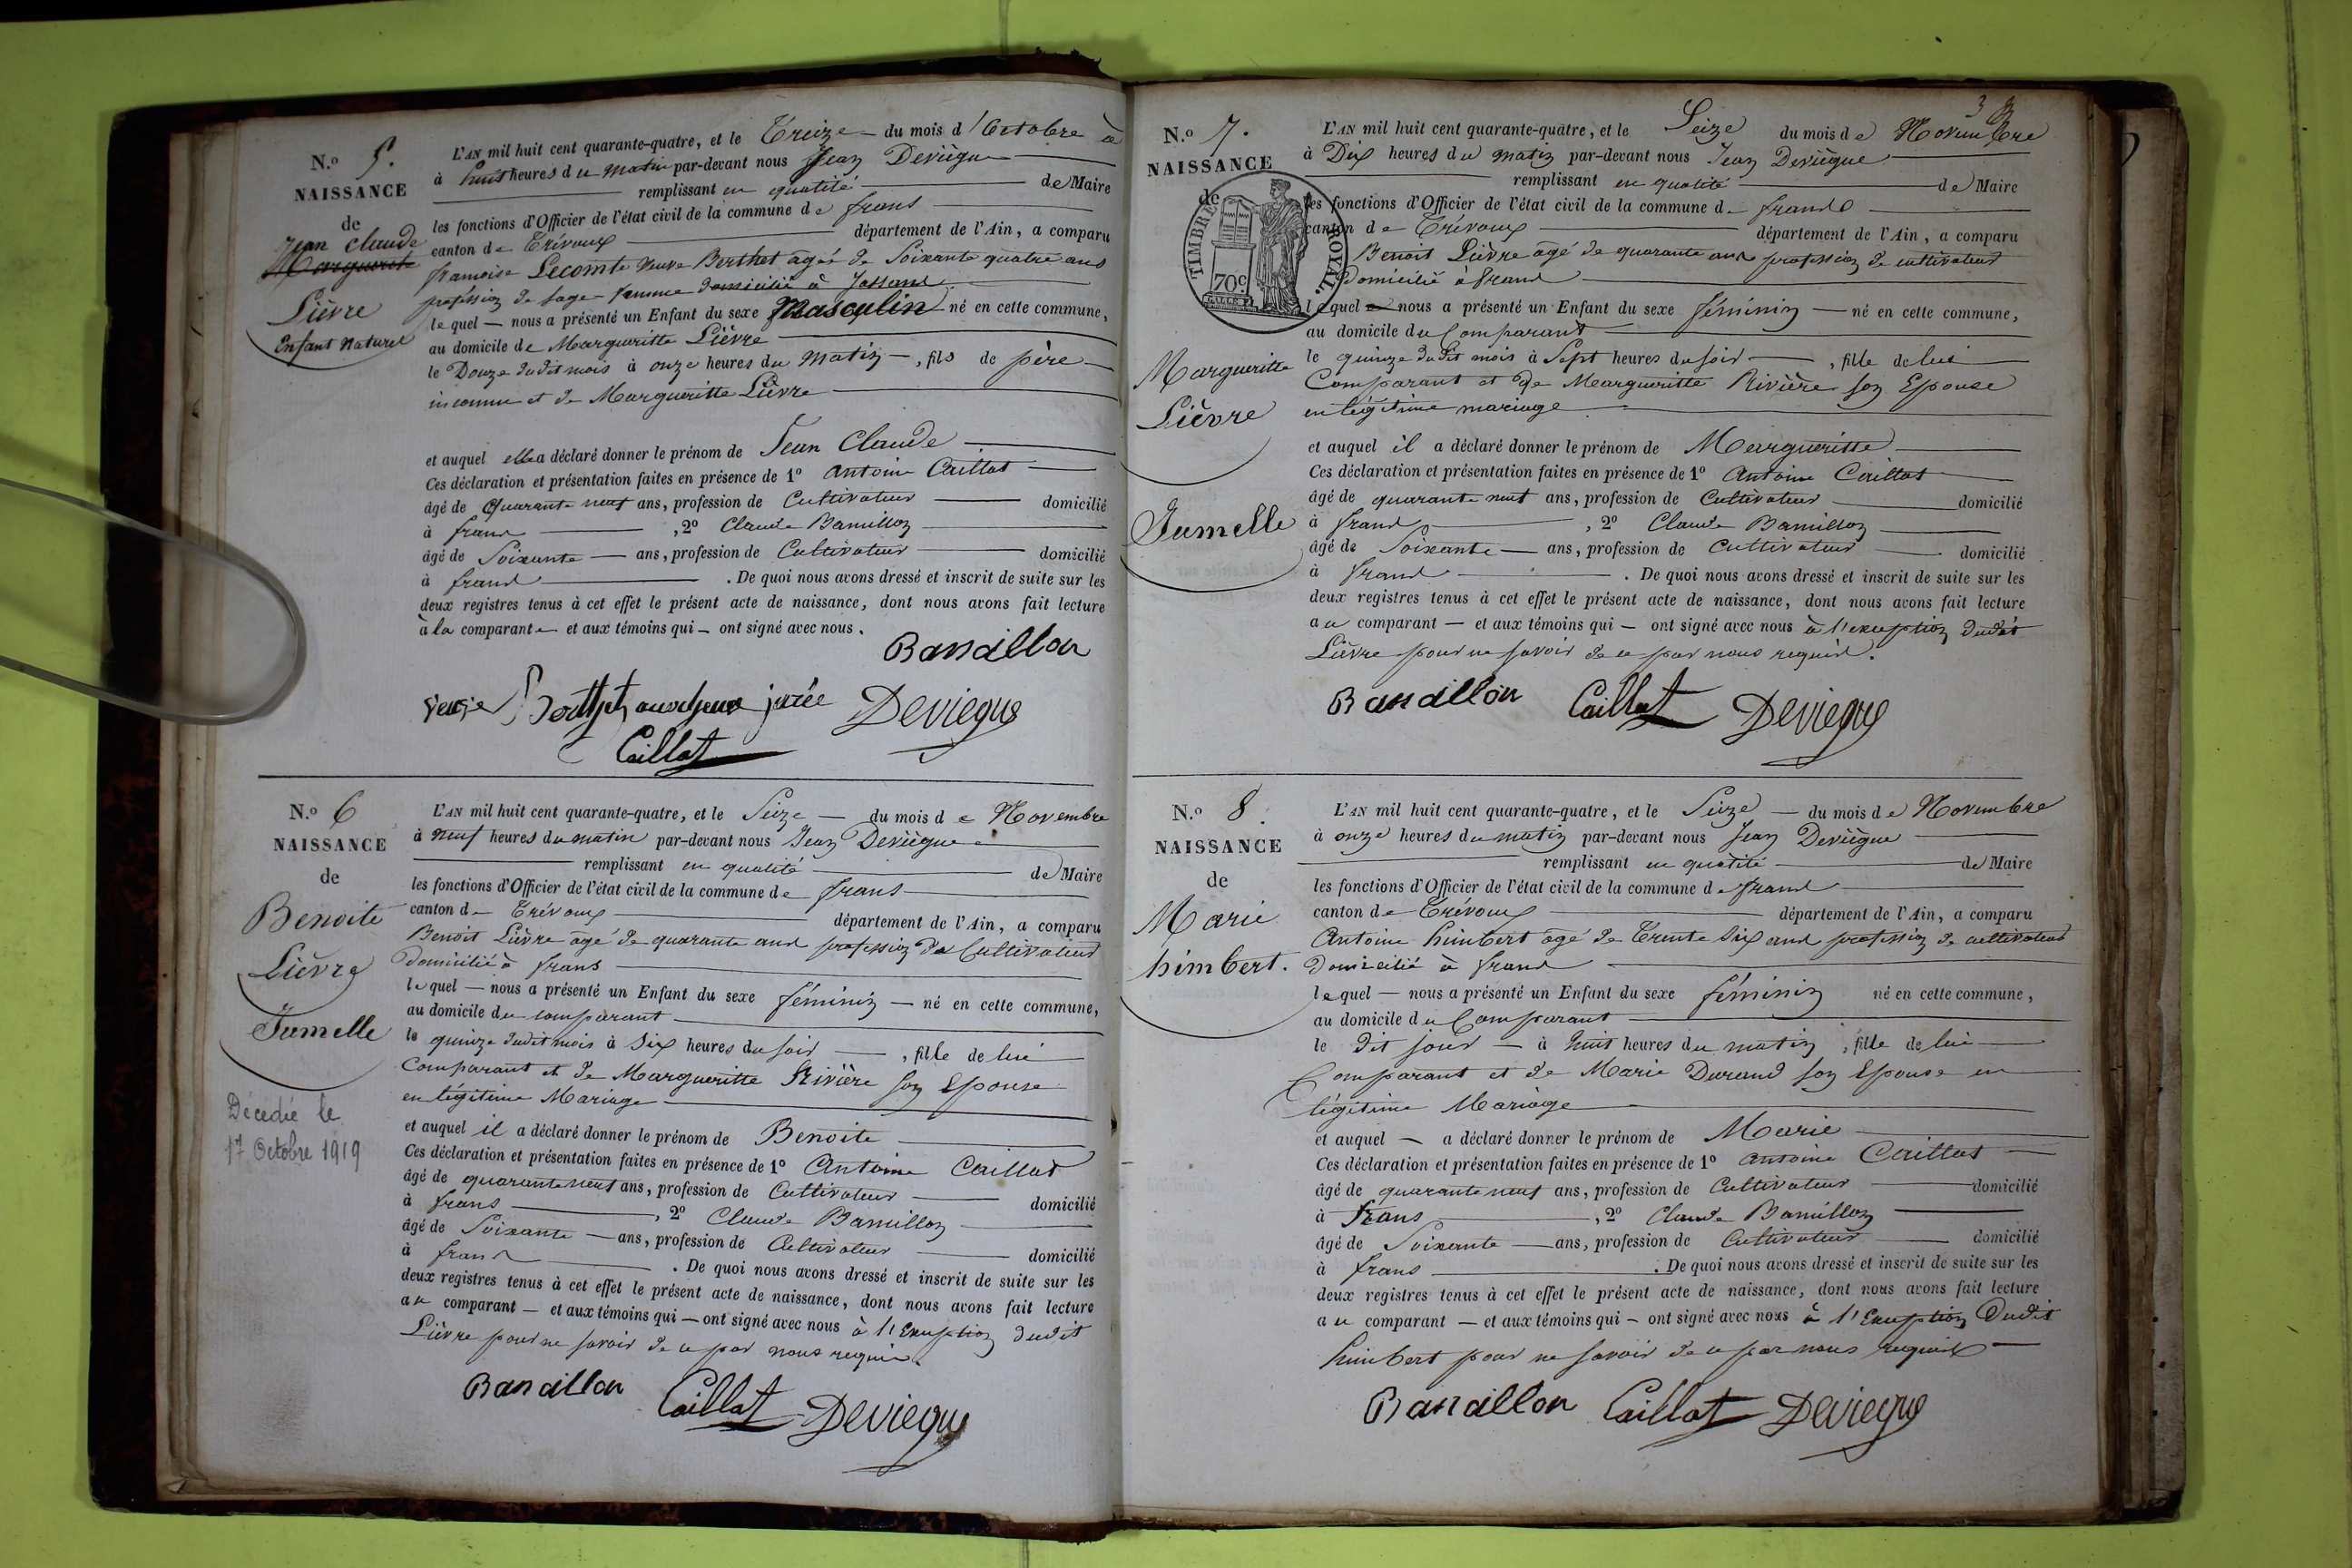 N.º 5.
NAISSANCE
de
Jean Claude
Marguerite
Lièvre
Enfant Naturel
L'AN mil huit cent quarante-quatre, et le Treize du mois d'Octobre à
à huit heures du matin par-devant nous Jean Deviègue
remplissant en qualité de Maire
les fonctions d'Officier de l'état civil de la commune de frans
canton de Trévoux département de l'Ain, a comparu
francoise Lecomte veuve Berthet agée de Soixante quatre ans
profession de sage-femme domiciliée à Jassans
lequel nous a présenté un Enfant du sexe Masculin né en cette commune,
au domicile de Margueritte Lièvre
le Douze dudit mois à onze heures du matin, fils de père
inconnu et de Margueritte Lièvre
et auquel elle a déclaré donner le prénom de Jean Claude
Ces déclaration et présentation faites en présence de 1º Antoine Caillat
âgé de Quarante neuf ans, profession de Cultivateur domicilié
à frans, 2º Claude Banillon
âgé de Soixante ans, profession de Cultivateur domicilié
à frans. De quoi nous avons dressé et inscrit de suite sur les
deux registres tenus à cet effet le présent acte de naissance, dont nous avons fait lecture
à la comparante et aux témoins qui ont signé avec nous.
Banaillon
jurée Deviegue
Caillat
N.º 6
NAISSANCE
de
Benoite
Lièvre
Jumelle
Décédée le
17 Octobre 1919
L'AN mil huit cent quarante-quatre, et le Seize du mois de Novembre
à neuf heures du matin par-devant nous Jean Deviègue
remplissant en qualité de Maire
les fonctions d'Officier de l'état civil de la commune de frans
canton de Trévoux département de l'Ain, a comparu
Benoit Lièvre âgé de quarante ans profession de Cultivateur
domicilié à frans
lequel nous a présenté un Enfant du sexe féminin né en cette commune,
au domicile du comparant
le quinze dudit mois à Six heures du soir, fille de lui
Comparant et de Margueritte Rivière son Epouse
en légitime Mariage
et auquel il a déclaré donner le prénom de Benoite
Ces déclaration et présentation faites en présence de 1º Antoine Caillat
âgé de quarante neuf ans, profession de Cultivateur domicilié
à frans, 2º Claude Banillon
âgé de Soixante ans, profession de Cultivateur domicilié
à frans. De quoi nous avons dressé et inscrit de suite sur les
deux registres tenus à cet effet le présent acte de naissance, dont nous avons fait lecture
au comparant et aux témoins qui ont signé avec nous à l'exception dudit
Lièvre pour ne savoir de ce par nous requis.
Banaillon Caillat Deviegue
3
N.º 7.
NAISSANCE
de
TIMBRE ROYAL.
70c.
Margueritte
Lièvre
Jumelle
L'AN mil huit cent quarante-quatre, et le Seize du mois de Novembre
à Dix heures du matin par-devant nous Jean Deviègue
remplissant en qualité de Maire
les fonctions d'Officier de l'état civil de la commune de frans
canton de Trévoux département de l'Ain, a comparu
Benoit Lièvre âgé de quarante ans profession de cultivateur
Domicilié à frans
lequel nous a présenté un Enfant du sexe féminin né en cette commune,
au domicile du Comparant
le quinze dudit mois à Sept heures du soir, fille de lui
Comparant et de Margueritte Rivière son Epouse
en légitime mariage
et auquel il a déclaré donner le prénom de Margueritte
Ces déclaration et présentation faites en présence de 1º Antoine Caillat
âgé de quarante neuf ans, profession de Cultivateur domicilié
à frans, 2º Claude Banillon
âgé de Soixante ans, profession de Cultivateur domicilié
à frans. De quoi nous avons dressé et inscrit de suite sur les
deux registres tenus à cet effet le présent acte de naissance, dont nous avons fait lecture
au comparant et aux témoins qui ont signé avec nous à l'exception dudit
Lièvre pour ne savoir de ce par nous requis.
Banaillon Caillat Deviegue
N.º 8.
NAISSANCE
de
Marie
himbert.
L'AN mil huit cent quarante-quatre, et le Seize du mois de Novembre
à onze heures du matin par-devant nous Jean Deviègue
remplissant en qualité de Maire
les fonctions d'Officier de l'état civil de la commune de frans
canton de Trévoux département de l'Ain, a comparu
Antoine himbert âgé de Trente Six ans profession de cultivateur
Domicilié à frans
lequel nous a présenté un Enfant du sexe féminin né en cette commune,
au domicile du Comparant
le dit jour à huit heures du matin, fille de lui
Comparant et de Marie Durand son Epouse en
légitime Mariage
et auquel a déclaré donner le prénom de Marie
Ces déclaration et présentation faites en présence de 1º Antoine Caillat
âgé de quarante neuf ans, profession de Cultivateur domicilié
à frans, 2º Claude Banillon
âgé de Soixante ans, profession de Cultivateur domicilié
à frans. De quoi nous avons dressé et inscrit de suite sur les
deux registres tenus à cet effet le présent acte de naissance, dont nous avons fait lecture
au comparant et aux témoins qui ont signé avec nous à l'Exception Dudit
himbert pour ne savoir de ce par nous requis
Banaillon Caillat Deviegue